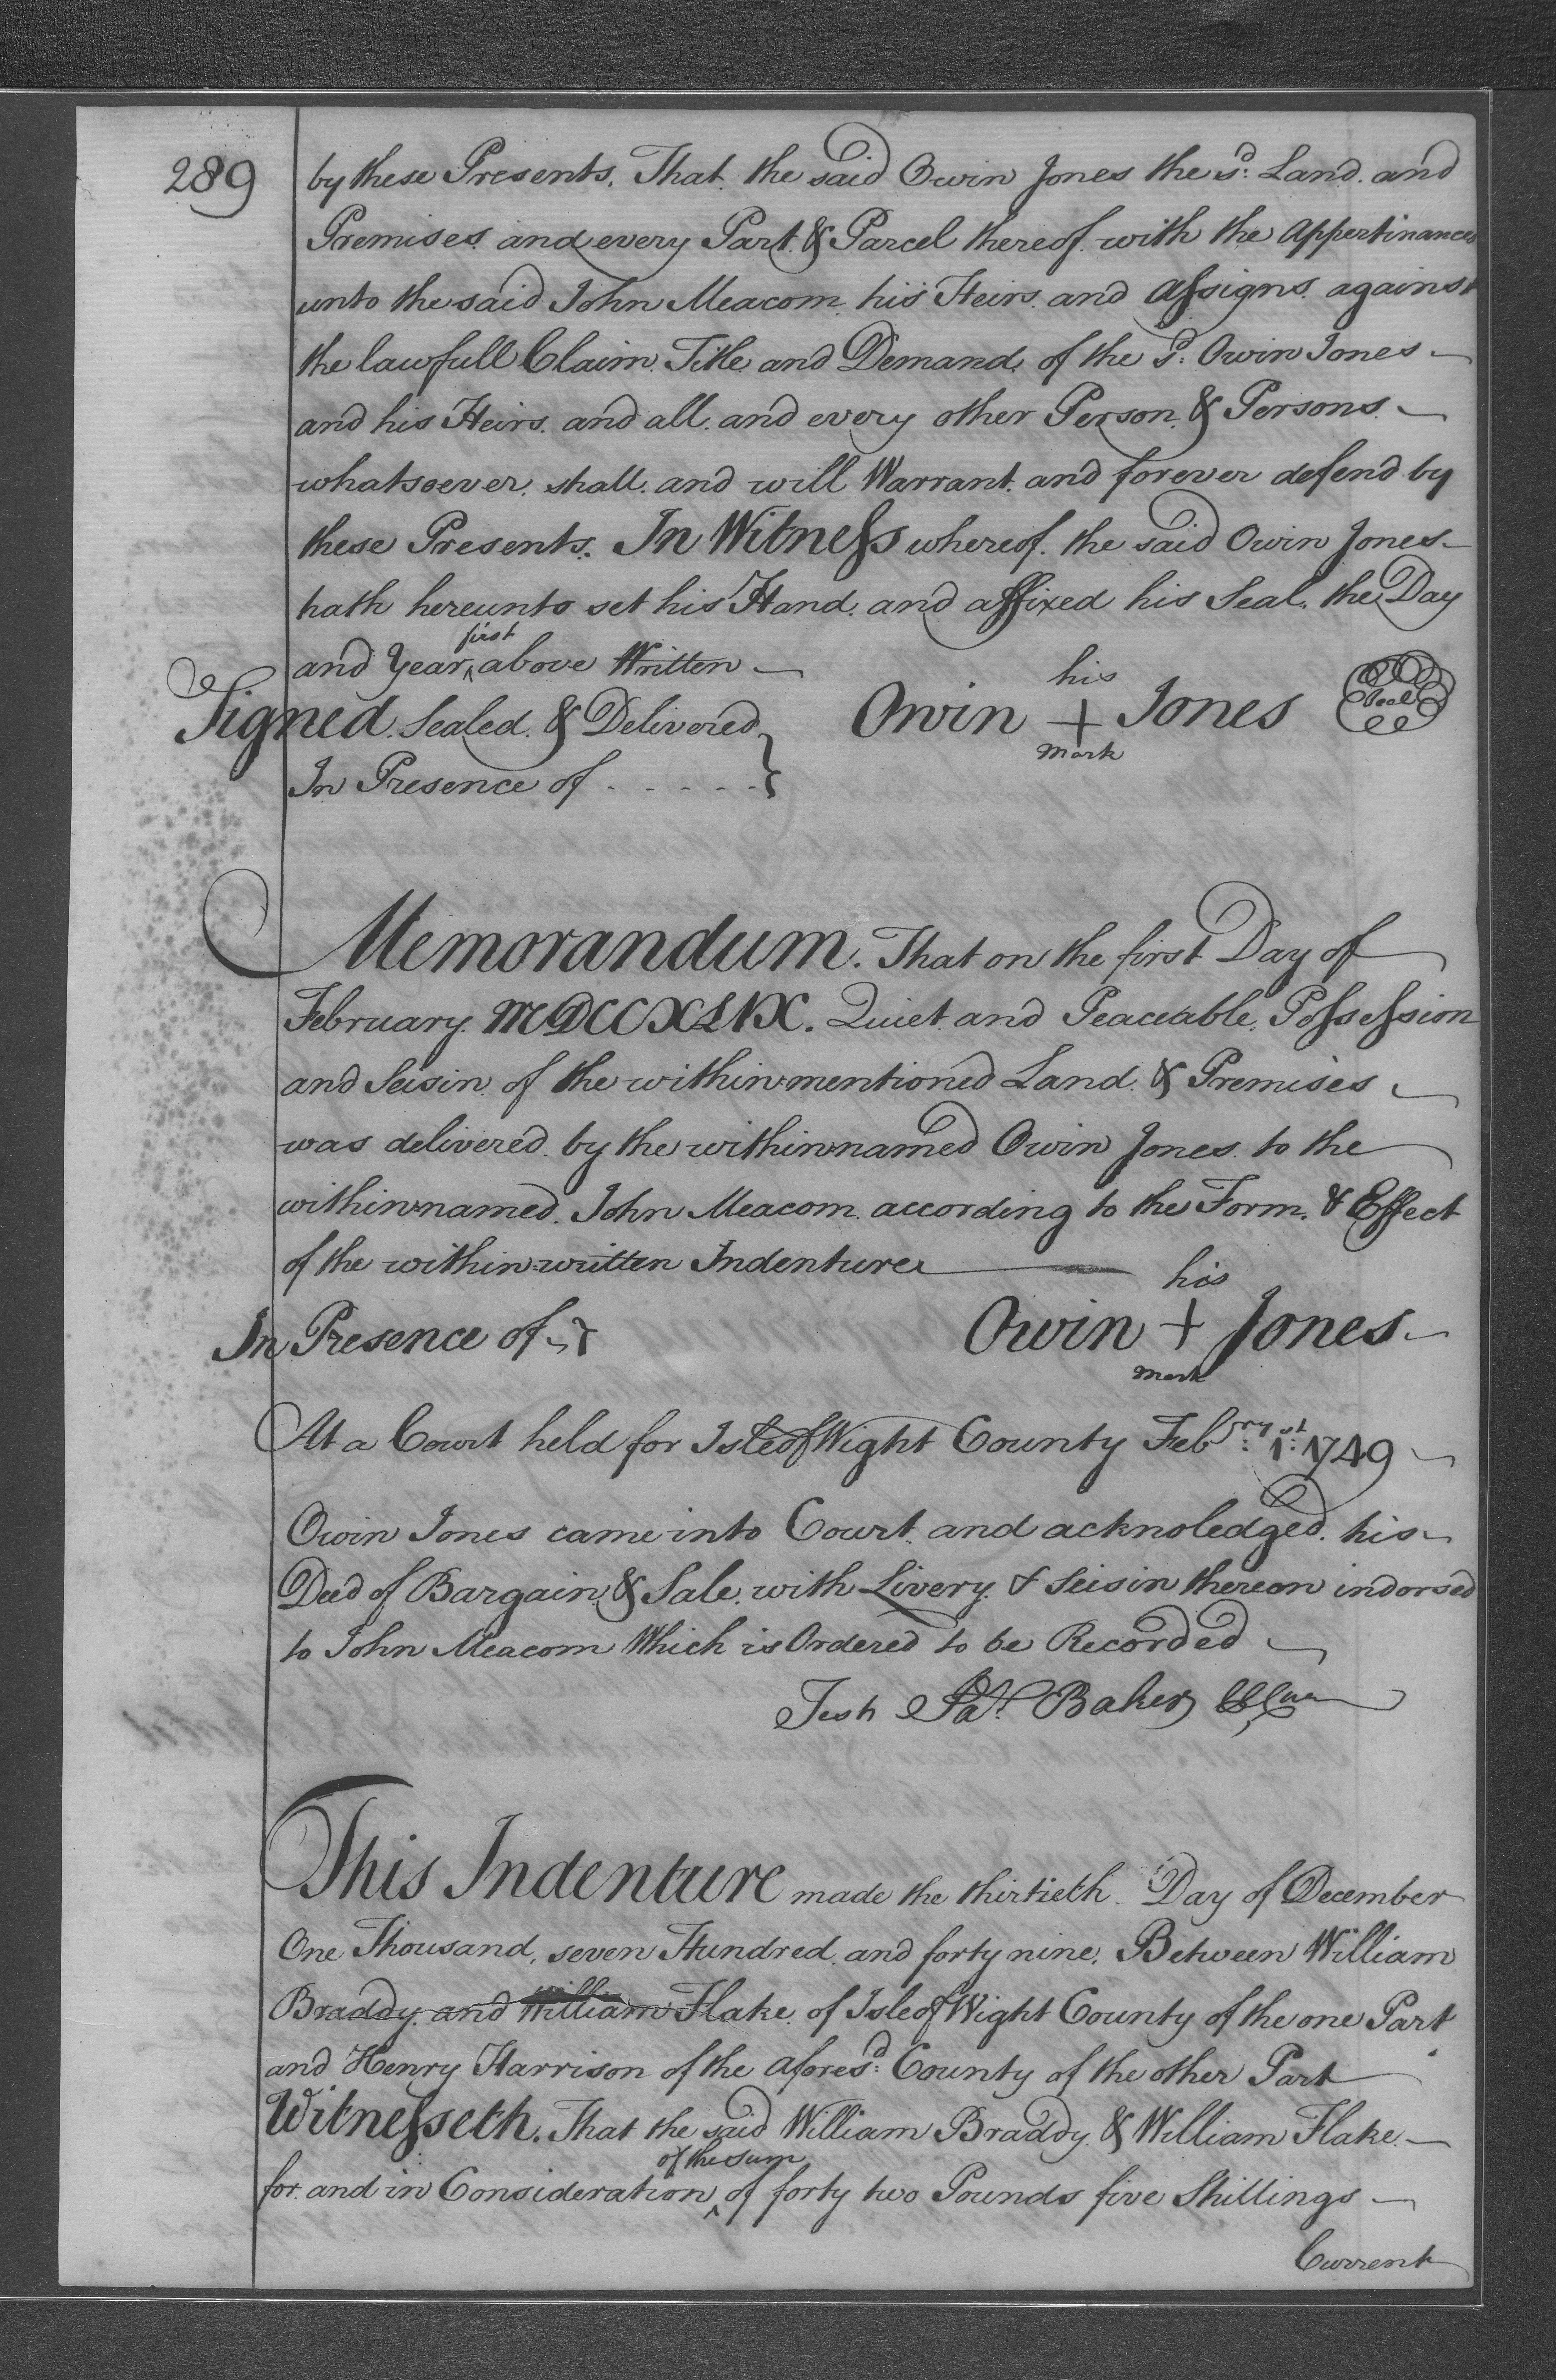 289
by these Presents. That the said Owin Jones the sd: Land and
Premises and every Part & Parcel thereof with the Appertinances
unto the said John Meacom his Heirs and Assigns against
the lawfull Claim Title and Demand of the sd: Owin Jones
and his Heirs and all and every other Person & Persons
whatsoever shall and will Warrant and forever defend by
these Presents. In Witness whereof the said Owin Jones
hath hereunto set his Hand and affixed his Seal the Day
first
and Year ^ above Written
his
Signed Sealed & Delivered Owin + Jones Seal
Mark
In Presence of
Memorandum. That on the first Day of
February MDCCXLIX. Quiet and Peaceable Possession
and Seisin of the within mentioned Land & Premises
was delivered by the within named Owin Jones to the
within named John Meacom according to the Form & Effect
of the within written Indenture
his
In Presence of Owin + Jones
Mark
At a Court held for Isle of Wight County Febry: 1st: 1749
Owin Jones came into Court and acknoledged his
Deed of Bargain & Sale with Livery & Seisin thereon indorsed
to John Meacom Which is Ordered to be Recorded
Test Jas. Baker
This Indenture made the thirtieth Day of December
One Thousand, seven Hundred and forty nine, Between William
Braddy and William Flake of Isle of Wight County of the one Part
and Henry Harrison of the aforesd: County of the other Part
Witnesseth. That the said William Braddy & William Flake
of the sum
for and in Consideration ^ of forty two Pounds five Shillings
Current